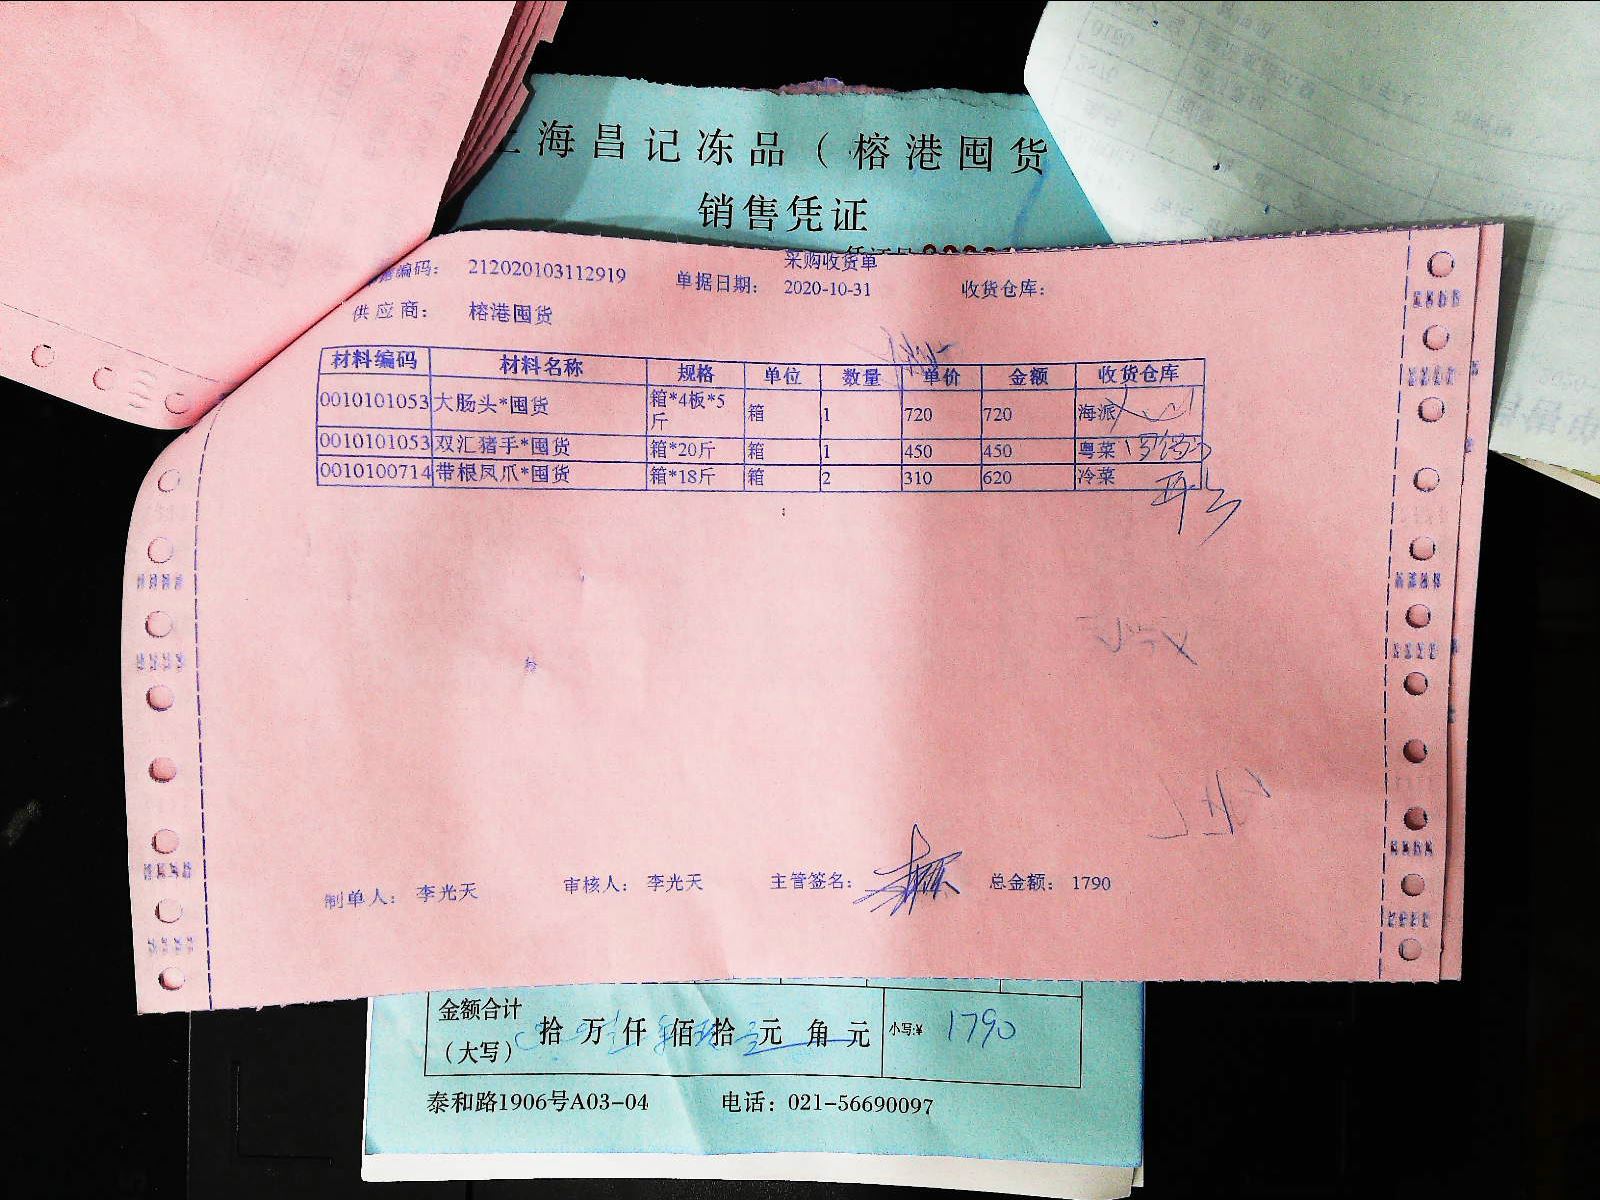 上海昌记冻品（榕港囤货
销售凭证
采购收货单
编码： 212020103112919 单据日期： 2020-10-31 收货仓库：
供应商： 榕港囤货
材料编码 材料名称 规格 单位 数量 单价 金额 收货仓库
0010101053 大肠头*囤货 箱*4板*5斤 箱 1 720 720 海派
0010101053 双汇猪手*囤货 箱*20斤 箱 1 450 450 粤菜
0010100714 带根凤爪*囤货 箱*18斤 箱 2 310 620 冷菜
制单人： 李光天 审核人： 李光天 主管签名： 总金额： 1790
金额合计（大写） 拾 万 仟 佰 拾 元 角 元 小写:¥ 1790
泰和路1906号A03-04 电话：021-56690097